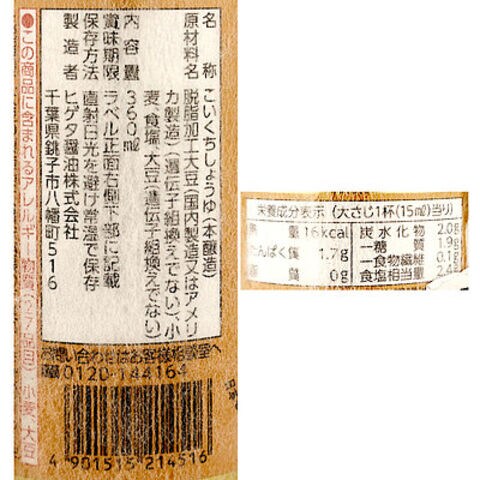 名称 こいくちしょうゆ(本醸造)
原材料名 脱脂加工大豆(国内製造又はアメリ
カ製造)(遺伝子組換えでない)、小
麦、食塩、大豆(遺伝子組換えでない)
内容量 360ml
賞味期限 ラベル正面右側下部に記載
保存方法 直射日光を避け常温で保存
製造者 ヒゲタ醤油株式会社
千葉県銚子市八幡町516
●この商品に含まれるアレルギー物質(27品目) 小麦、大豆
お問い合わせはお客様相談室へ
0120-144164
4 901515 214516
栄養成分表示 (大さじ1杯(15ml)当り)
熱量 16kcal
たんぱく質 1.7g
脂質 0g
炭水化物 2.0g
-糖質 1.9g
-食物繊維 0.1g
食塩相当量 2.4g